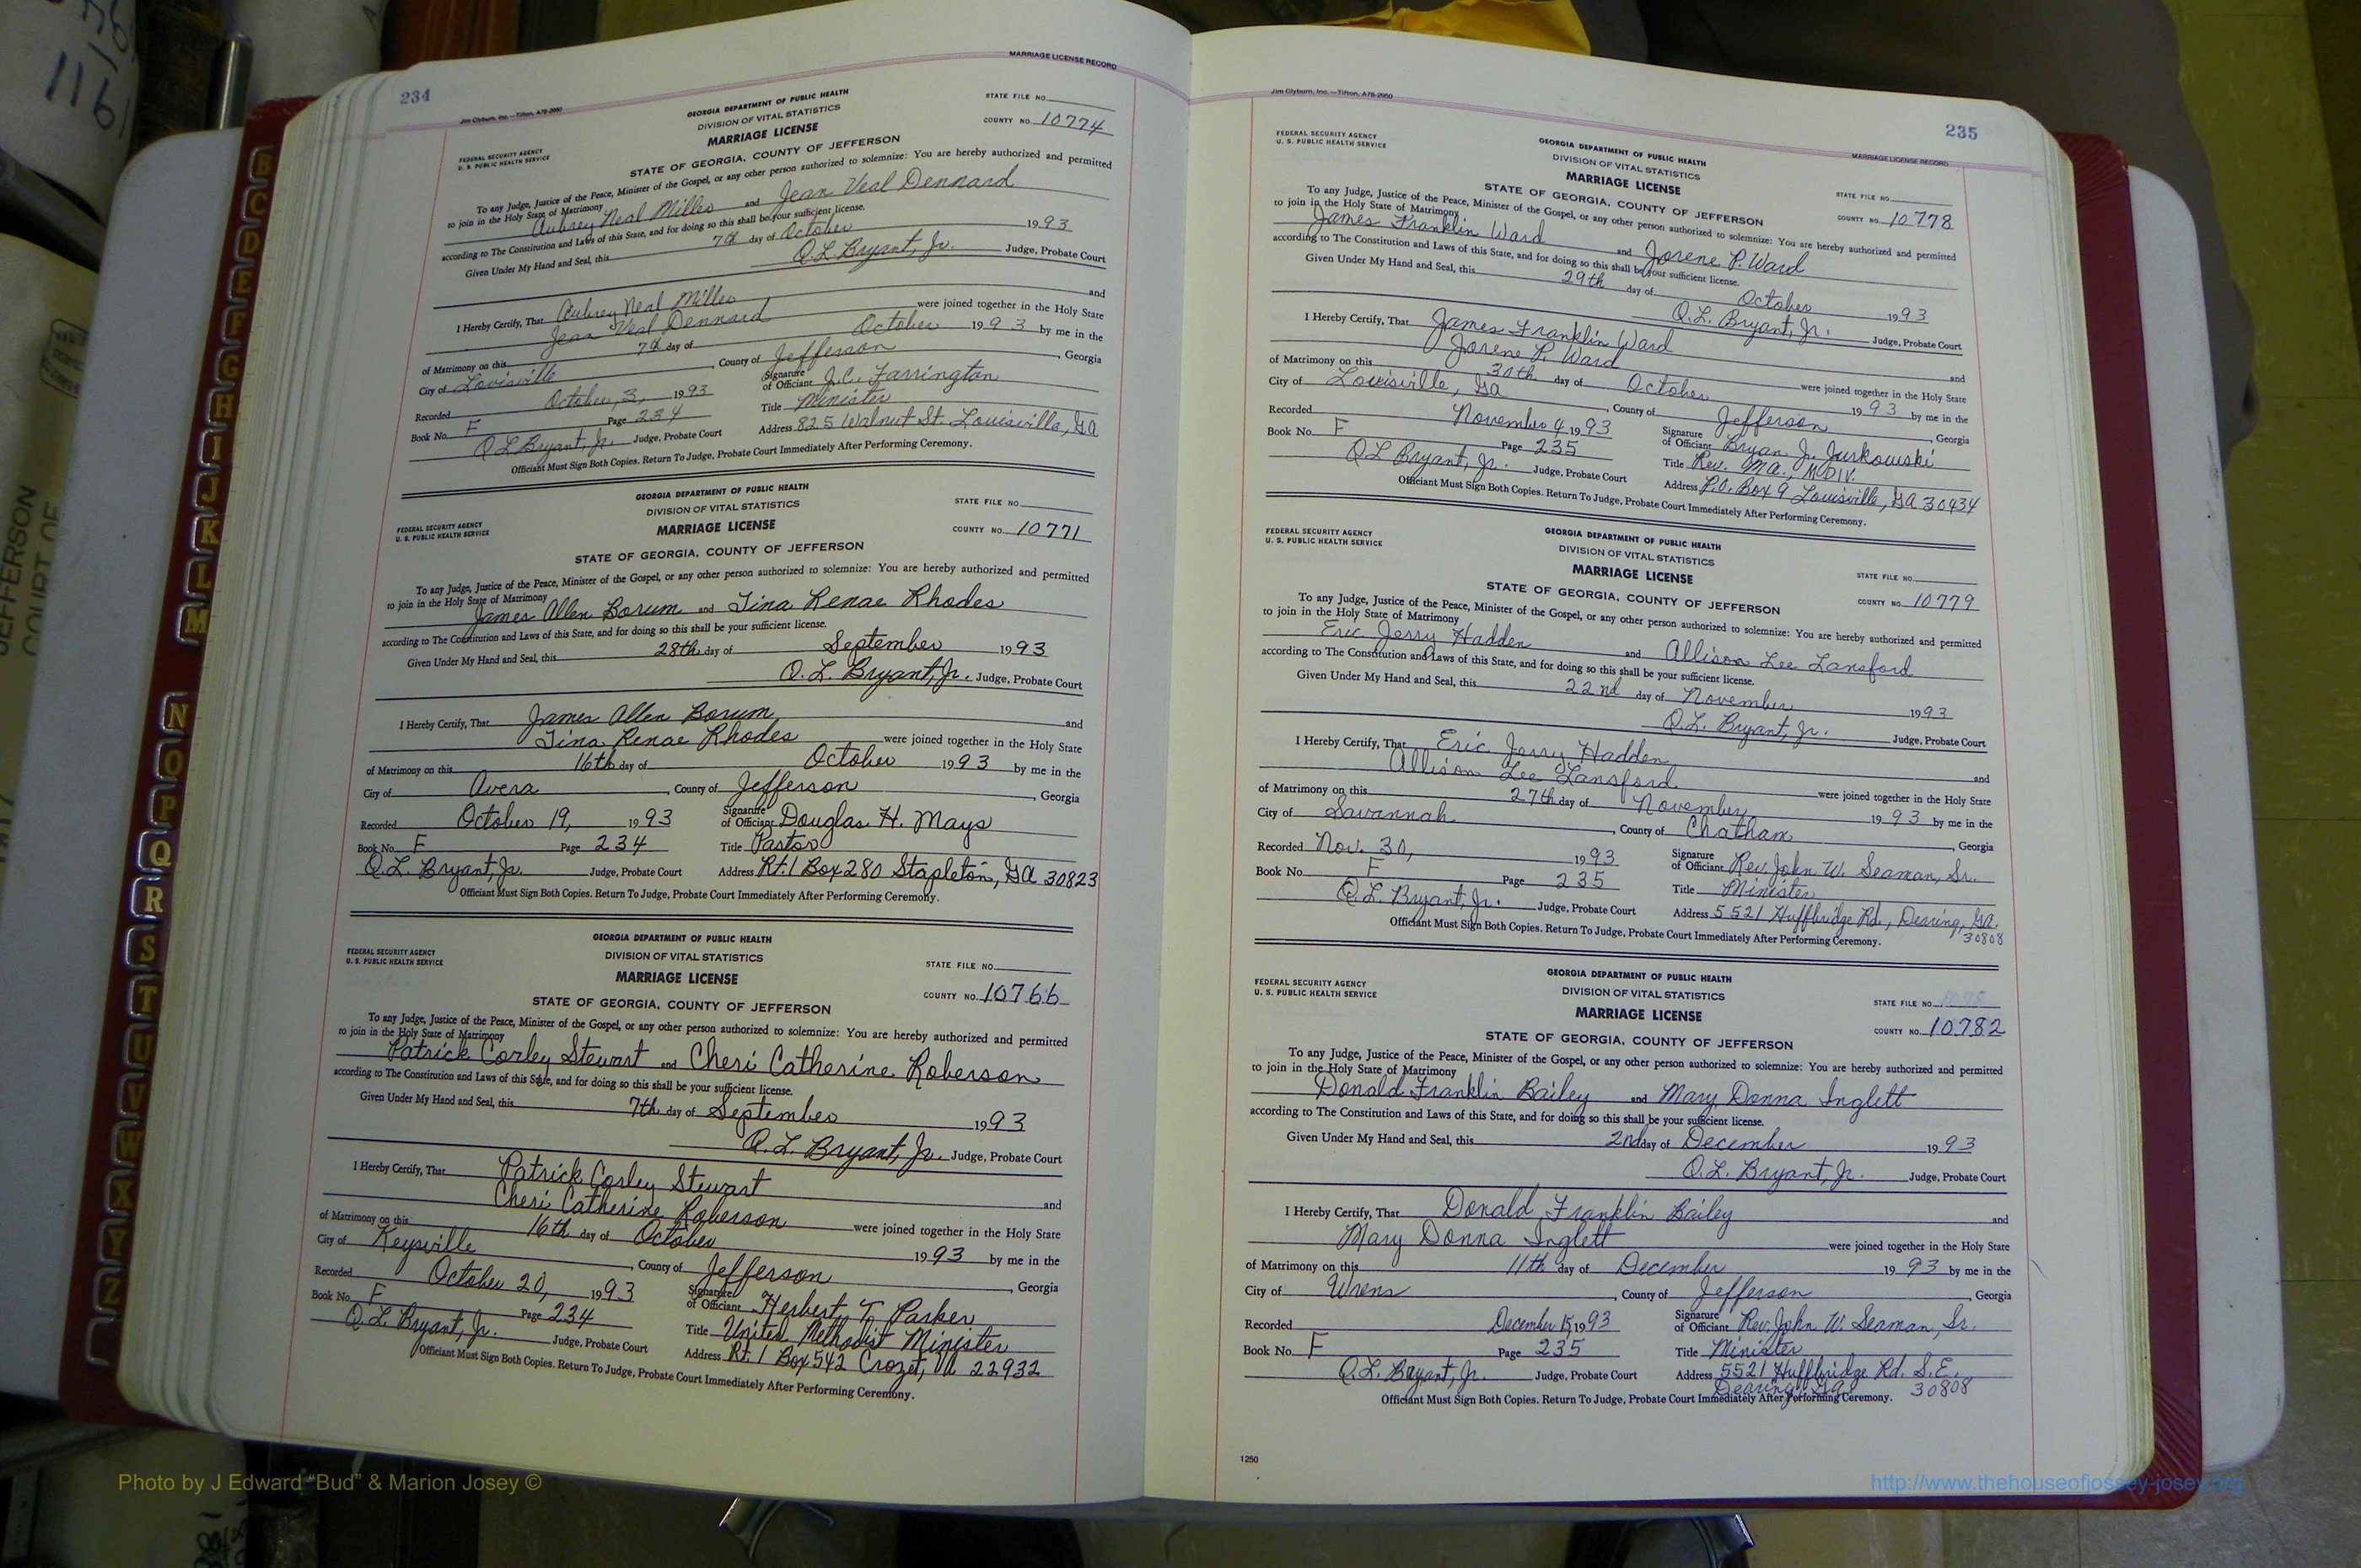 234
MARRIAGE LICENSE RECORD
Jim Clyburn, Inc.—Tifton, A78-2950
GEORGIA DEPARTMENT OF PUBLIC HEALTH
DIVISION OF VITAL STATISTICS
MARRIAGE LICENSE
STATE FILE NO.
COUNTY NO. 10774
FEDERAL SECURITY AGENCY
U. S. PUBLIC HEALTH SERVICE
STATE OF GEORGIA, COUNTY OF JEFFERSON
To any Judge, Justice of the Peace, Minister of the Gospel, or any other person authorized to solemnize: You are hereby authorized and permitted
to join in the Holy State of Matrimony Aubrey Neal Miller and Jean Veal Dennard
according to The Constitution and Laws of this State, and for doing so this shall be your sufficient license.
Given Under My Hand and Seal, this 7th day of October 1993
Q.L. Bryant, Jr. Judge, Probate Court
I Hereby Certify, That Aubrey Neal Miller and
Jean Veal Dennard were joined together in the Holy State
of Matrimony on this 7th day of October 1993 by me in the
City of Louisville, County of Jefferson, Georgia
Recorded October, 3, 1993 Signature of Officiant J.C. Farrington
Book No. F Page 234 Title Minister
Q L Bryant, Jr. Judge, Probate Court Address 825 Walnut St. Louisville, GA
Officiant Must Sign Both Copies. Return To Judge, Probate Court Immediately After Performing Ceremony.
GEORGIA DEPARTMENT OF PUBLIC HEALTH
DIVISION OF VITAL STATISTICS
MARRIAGE LICENSE
STATE FILE NO.
COUNTY NO. 10771
FEDERAL SECURITY AGENCY
U. S. PUBLIC HEALTH SERVICE
STATE OF GEORGIA, COUNTY OF JEFFERSON
To any Judge, Justice of the Peace, Minister of the Gospel, or any other person authorized to solemnize: You are hereby authorized and permitted
to join in the Holy State of Matrimony James Allen Borum and Tina Renae Rhodes
according to The Constitution and Laws of this State, and for doing so this shall be your sufficient license.
Given Under My Hand and Seal, this 28th day of September 1993
Q.L. Bryant, Jr. Judge, Probate Court
I Hereby Certify, That James Allen Borum and
Tina Renae Rhodes were joined together in the Holy State
of Matrimony on this 16th day of October 1993 by me in the
City of Avera, County of Jefferson, Georgia
Recorded October 19, 1993 Signature of Officiant Douglas H. Mays
Book No. F Page 234 Title Pastor
Q.L. Bryant, Jr. Judge, Probate Court Address Rt. 1 Box 280 Stapleton, GA 30823
Officiant Must Sign Both Copies. Return To Judge, Probate Court Immediately After Performing Ceremony.
GEORGIA DEPARTMENT OF PUBLIC HEALTH
DIVISION OF VITAL STATISTICS
MARRIAGE LICENSE
STATE FILE NO.
COUNTY NO. 10766
FEDERAL SECURITY AGENCY
U. S. PUBLIC HEALTH SERVICE
STATE OF GEORGIA, COUNTY OF JEFFERSON
To any Judge, Justice of the Peace, Minister of the Gospel, or any other person authorized to solemnize: You are hereby authorized and permitted
to join in the Holy State of Matrimony Patrick Corley Stewart and Cheri Catherine Roberson
according to The Constitution and Laws of this State, and for doing so this shall be your sufficient license.
Given Under My Hand and Seal, this 7th day of September 1993
Q.L. Bryant, Jr. Judge, Probate Court
I Hereby Certify, That Patrick Corley Stewart and
Cheri Catherine Roberson were joined together in the Holy State
of Matrimony on this 16th day of October 1993 by me in the
City of Keysville, County of Jefferson, Georgia
Recorded October 20, 1993 Signature of Officiant Herbert T. Parker
Book No. F Page 234 Title United Methodist Minister
Q.L. Bryant, Jr. Judge, Probate Court Address Rt. 1 Box 542 Crozet, VA 22932
Officiant Must Sign Both Copies. Return To Judge, Probate Court Immediately After Performing Ceremony.
Jim Clyburn, Inc.—Tifton, A78-2950
235
MARRIAGE LICENSE RECORD
FEDERAL SECURITY AGENCY
U. S. PUBLIC HEALTH SERVICE
GEORGIA DEPARTMENT OF PUBLIC HEALTH
DIVISION OF VITAL STATISTICS
MARRIAGE LICENSE
STATE OF GEORGIA, COUNTY OF JEFFERSON
STATE FILE NO.
COUNTY NO. 10778
To any Judge, Justice of the Peace, Minister of the Gospel, or any other person authorized to solemnize: You are hereby authorized and permitted
to join in the Holy State of Matrimony James Franklin Ward and Jorene P. Ward
according to The Constitution and Laws of this State, and for doing so this shall be your sufficient license.
Given Under My Hand and Seal, this 29th day of October 1993
Q.L. Bryant, Jr. Judge, Probate Court
I Hereby Certify, That James Franklin Ward and
Jorene P. Ward were joined together in the Holy State
of Matrimony on this 30th day of October 1993 by me in the
City of Louisville, Ga, County of Jefferson, Georgia
Recorded November 4 1993 Signature of Officiant Bryan J. Jurkowski
Book No. F Page 235 Title Rev. MA., M.DIV.
Q L Bryant, Jr. Judge, Probate Court Address P.O. Box 9 Louisville, GA 30434
Officiant Must Sign Both Copies. Return To Judge, Probate Court Immediately After Performing Ceremony.
FEDERAL SECURITY AGENCY
U. S. PUBLIC HEALTH SERVICE
GEORGIA DEPARTMENT OF PUBLIC HEALTH
DIVISION OF VITAL STATISTICS
MARRIAGE LICENSE
STATE OF GEORGIA, COUNTY OF JEFFERSON
STATE FILE NO.
COUNTY NO. 10779
To any Judge, Justice of the Peace, Minister of the Gospel, or any other person authorized to solemnize: You are hereby authorized and permitted
to join in the Holy State of Matrimony Eric Jerry Hadden and Allison Lee Lansford
according to The Constitution and Laws of this State, and for doing so this shall be your sufficient license.
Given Under My Hand and Seal, this 22nd day of November 1993
Q.L. Bryant, Jr. Judge, Probate Court
I Hereby Certify, That Eric Jerry Hadden and
Allison Lee Lansford were joined together in the Holy State
of Matrimony on this 27th day of November 1993 by me in the
City of Savannah, County of Chatham, Georgia
Recorded Nov. 30, 1993 Signature of Officiant Rev. John W. Seaman, Sr.
Book No. F Page 235 Title Minister
Q.L. Bryant, Jr. Judge, Probate Court Address 5521 Huffbridge Rd., Dearing, GA. 30808
Officiant Must Sign Both Copies. Return To Judge, Probate Court Immediately After Performing Ceremony.
FEDERAL SECURITY AGENCY
U. S. PUBLIC HEALTH SERVICE
GEORGIA DEPARTMENT OF PUBLIC HEALTH
DIVISION OF VITAL STATISTICS
MARRIAGE LICENSE
STATE OF GEORGIA, COUNTY OF JEFFERSON
STATE FILE NO.
COUNTY NO. 10782
To any Judge, Justice of the Peace, Minister of the Gospel, or any other person authorized to solemnize: You are hereby authorized and permitted
to join in the Holy State of Matrimony Donald Franklin Bailey and Mary Donna Inglett
according to The Constitution and Laws of this State, and for doing so this shall be your sufficient license.
Given Under My Hand and Seal, this 2nd day of December 1993
Q.L. Bryant, Jr. Judge, Probate Court
I Hereby Certify, That Donald Franklin Bailey and
Mary Donna Inglett were joined together in the Holy State
of Matrimony on this 11th day of December 1993 by me in the
City of Wrens, County of Jefferson, Georgia
Recorded December 15, 1993 Signature of Officiant Rev. John W. Seaman, Sr.
Book No. F Page 235 Title Minister
Q.L. Bryant, Jr. Judge, Probate Court Address 5521 Huffbridge Rd. S.E.
Dearing, Ga. 30808
Officiant Must Sign Both Copies. Return To Judge, Probate Court Immediately After Performing Ceremony.
1250
B
C
D
E
F
G
H
I
J
K
L
M
N
O
P
Q
R
S
T
U
V
W
X
Y
Z
JEFFERSON
COURT OF
Photo by J Edward “Bud” & Marion Josey ©
http://www.thehouseofjossey-josey.org